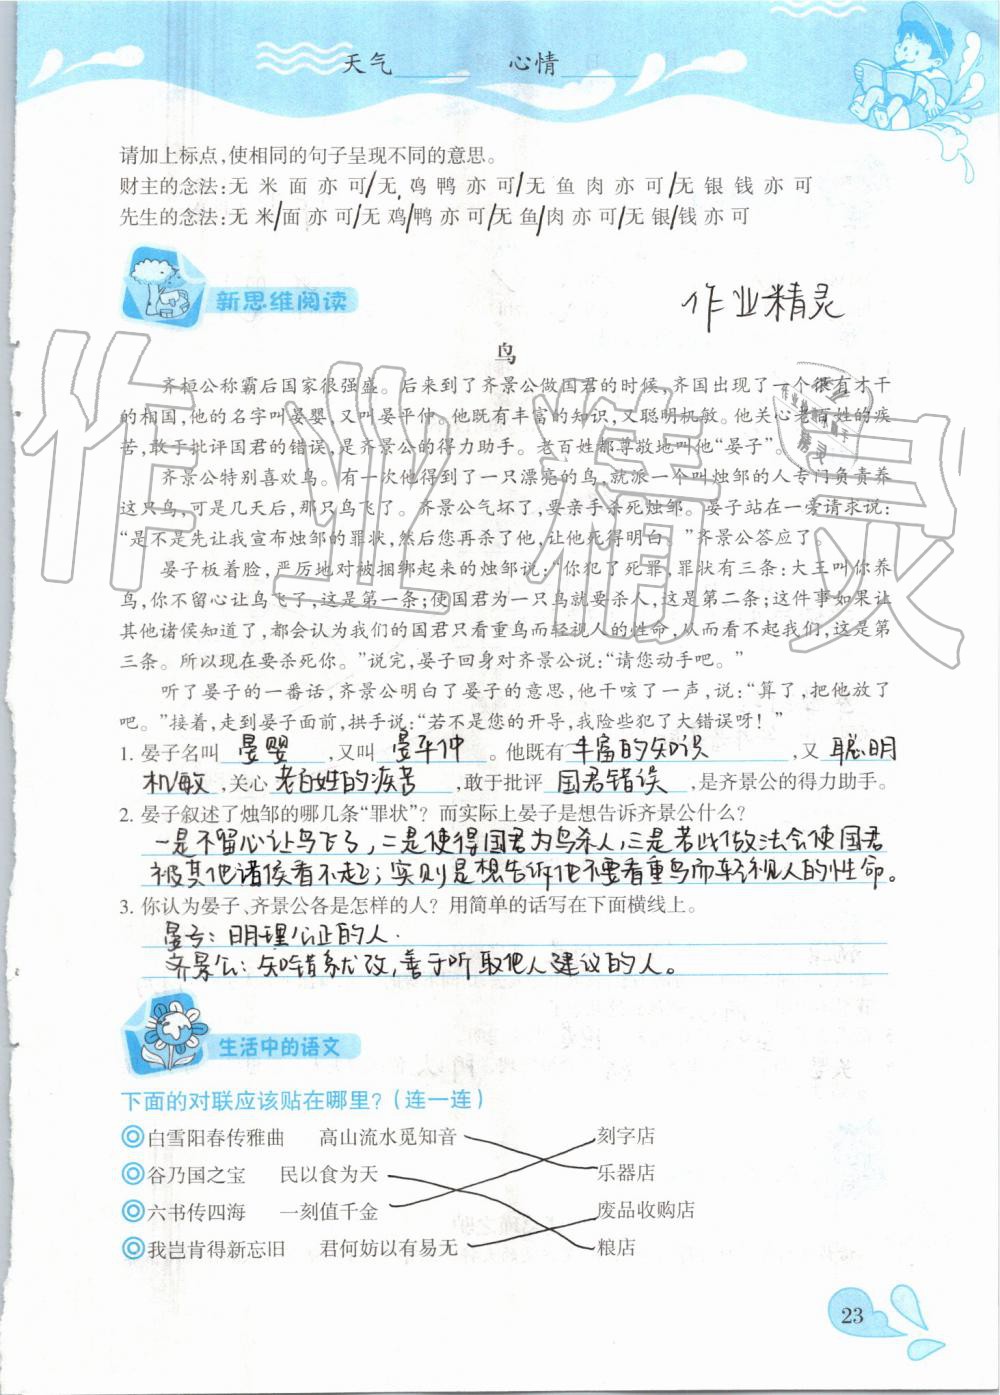 天气 心情
请加上标点,使相同的句子呈现不同的意思。
财主的念法:无 米 面 亦 可/无 鸡 鸭 亦 可/无 鱼 肉 亦 可/无 银 钱 亦 可
先生的念法:无 米/面 亦 可/无 鸡/鸭 亦 可/无 鱼/肉 亦 可/无 银/钱 亦 可
新思维阅读
作业精灵
鸟
齐桓公称霸后国家很强盛。后来到了齐景公做国君的时候,齐国出现了一个很有才干
的相国,他的名字叫晏婴,又叫晏平仲。他既有丰富的知识,又聪明机敏。他关心老百姓的疾
苦,敢于批评国君的错误,是齐景公的得力助手。老百姓都尊敬地叫他“晏子”。
齐景公特别喜欢鸟。有一次他得到了一只漂亮的鸟,就派一个叫烛邹的人专门负责养
这只鸟,可是几天后,那只鸟飞了。齐景公气坏了,要亲手杀死烛邹。晏子站在一旁请求说:
“是不是先让我宣布烛邹的罪状,然后您再杀了他,让他死得明白。”齐景公答应了。
晏子板着脸,严厉地对被捆绑起来的烛邹说:“你犯了死罪,罪状有三条:大王叫你养
鸟,你不留心让鸟飞了,这是第一条;使国君为一只鸟就要杀人,这是第二条;这件事如果让
其他诸侯知道了,都会认为我们的国君只看重鸟而轻视人的性命,从而看不起我们,这是第
三条。所以现在要杀死你。”说完,晏子回身对齐景公说:“请您动手吧。”
听了晏子的一番话,齐景公明白了晏子的意思,他干咳了一声,说:“算了,把他放了
吧。”接着,走到晏子面前,拱手说:“若不是您的开导,我险些犯了大错误呀!”
1. 晏子名叫 晏婴 ,又叫 晏平仲 。他既有 丰富的知识 ,又 聪明
机敏 ,关心 老百姓的疾苦 ,敢于批评 国君错误 ,是齐景公的得力助手。
2. 晏子叙述了烛邹的哪几条“罪状”?而实际上晏子是想告诉齐景公什么?
一是不留心让鸟飞了,二是使得国君为鸟杀人,三是若此做法会使国君
被其他诸侯看不起;实则是想告诉他不要看重鸟而轻视人的性命。
3. 你认为晏子、齐景公各是怎样的人?用简单的话写在下面横线上。
晏子:明理公正的人.
齐景公:知错就改,善于听取他人建议的人。
生活中的语文
下面的对联应该贴在哪里?(连一连)
白雪阳春传雅曲 高山流水觅知音 刻字店
谷乃国之宝 民以食为天 乐器店
六书传四海 一刻值千金 废品收购店
我岂肯得新忘旧 君何妨以有易无 粮店
23
作业精灵